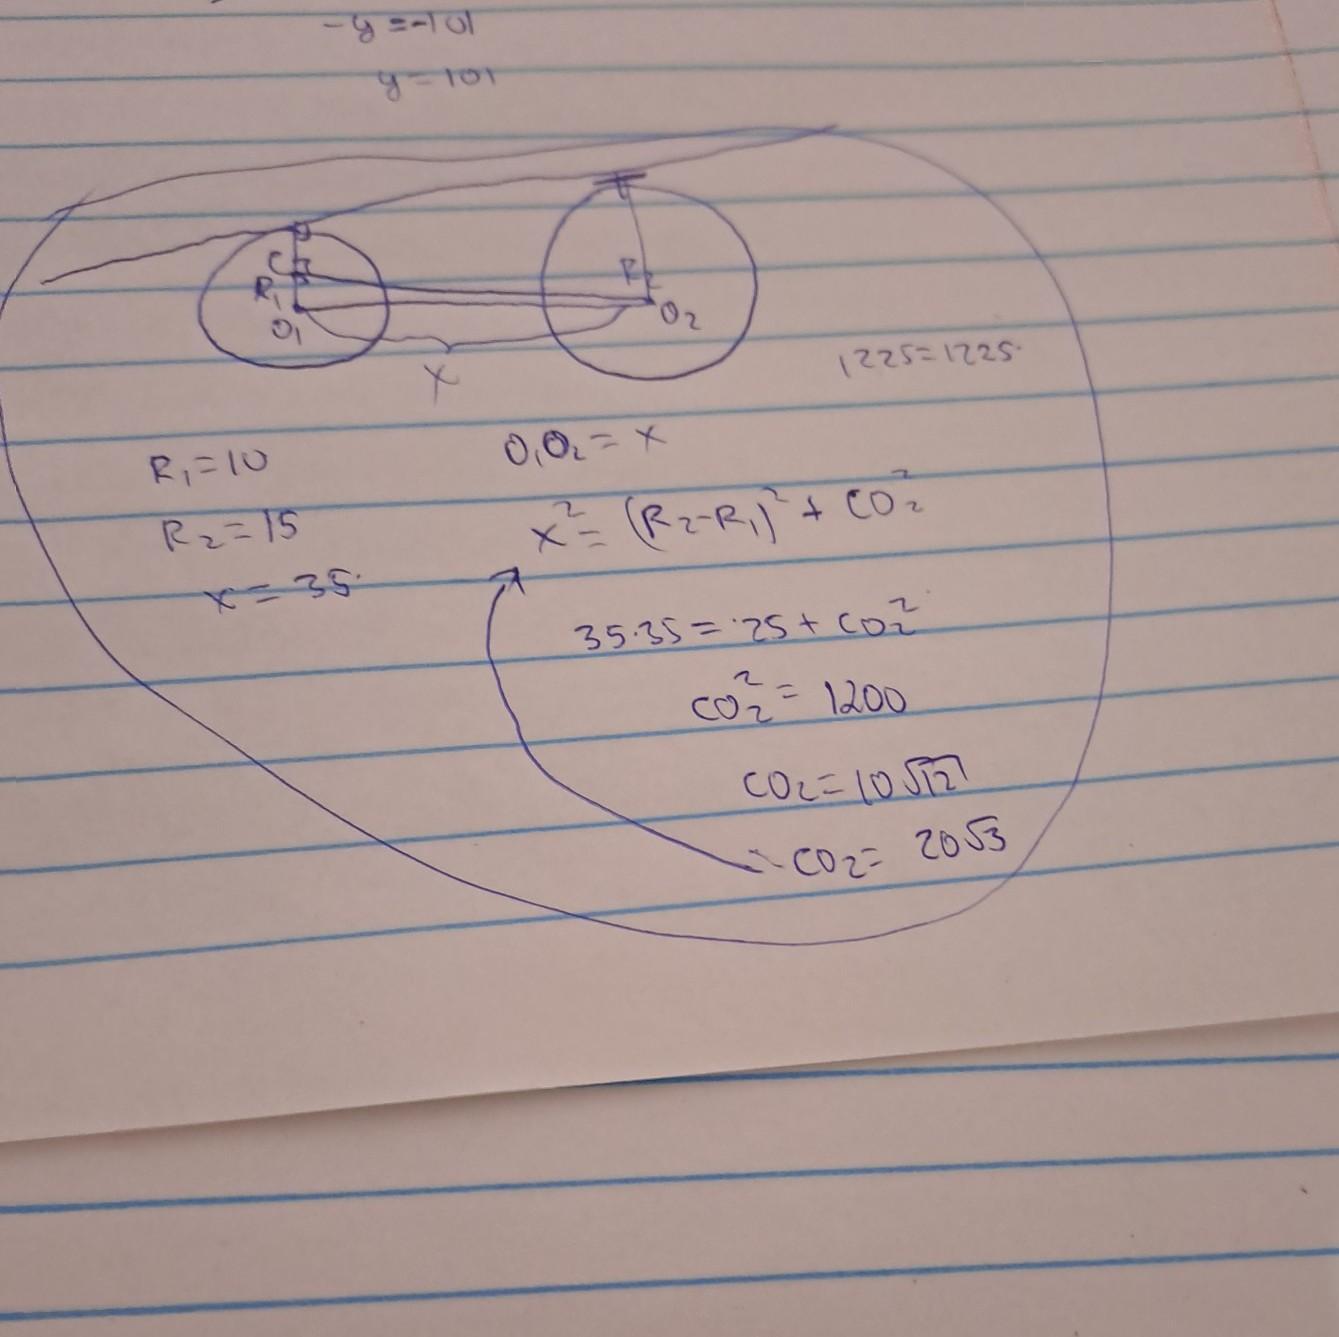 -y=-101
y=101
C
R₁
O₁
R
O₂
x
1225=1225.
R₁=10
O₁O₂=x
R₂=15
x²=(R₂-R₁)²+CO₂²
x=35.
35.35=.25+CO₂²
CO₂²=1200
CO₂=10√12
CO₂=20√3